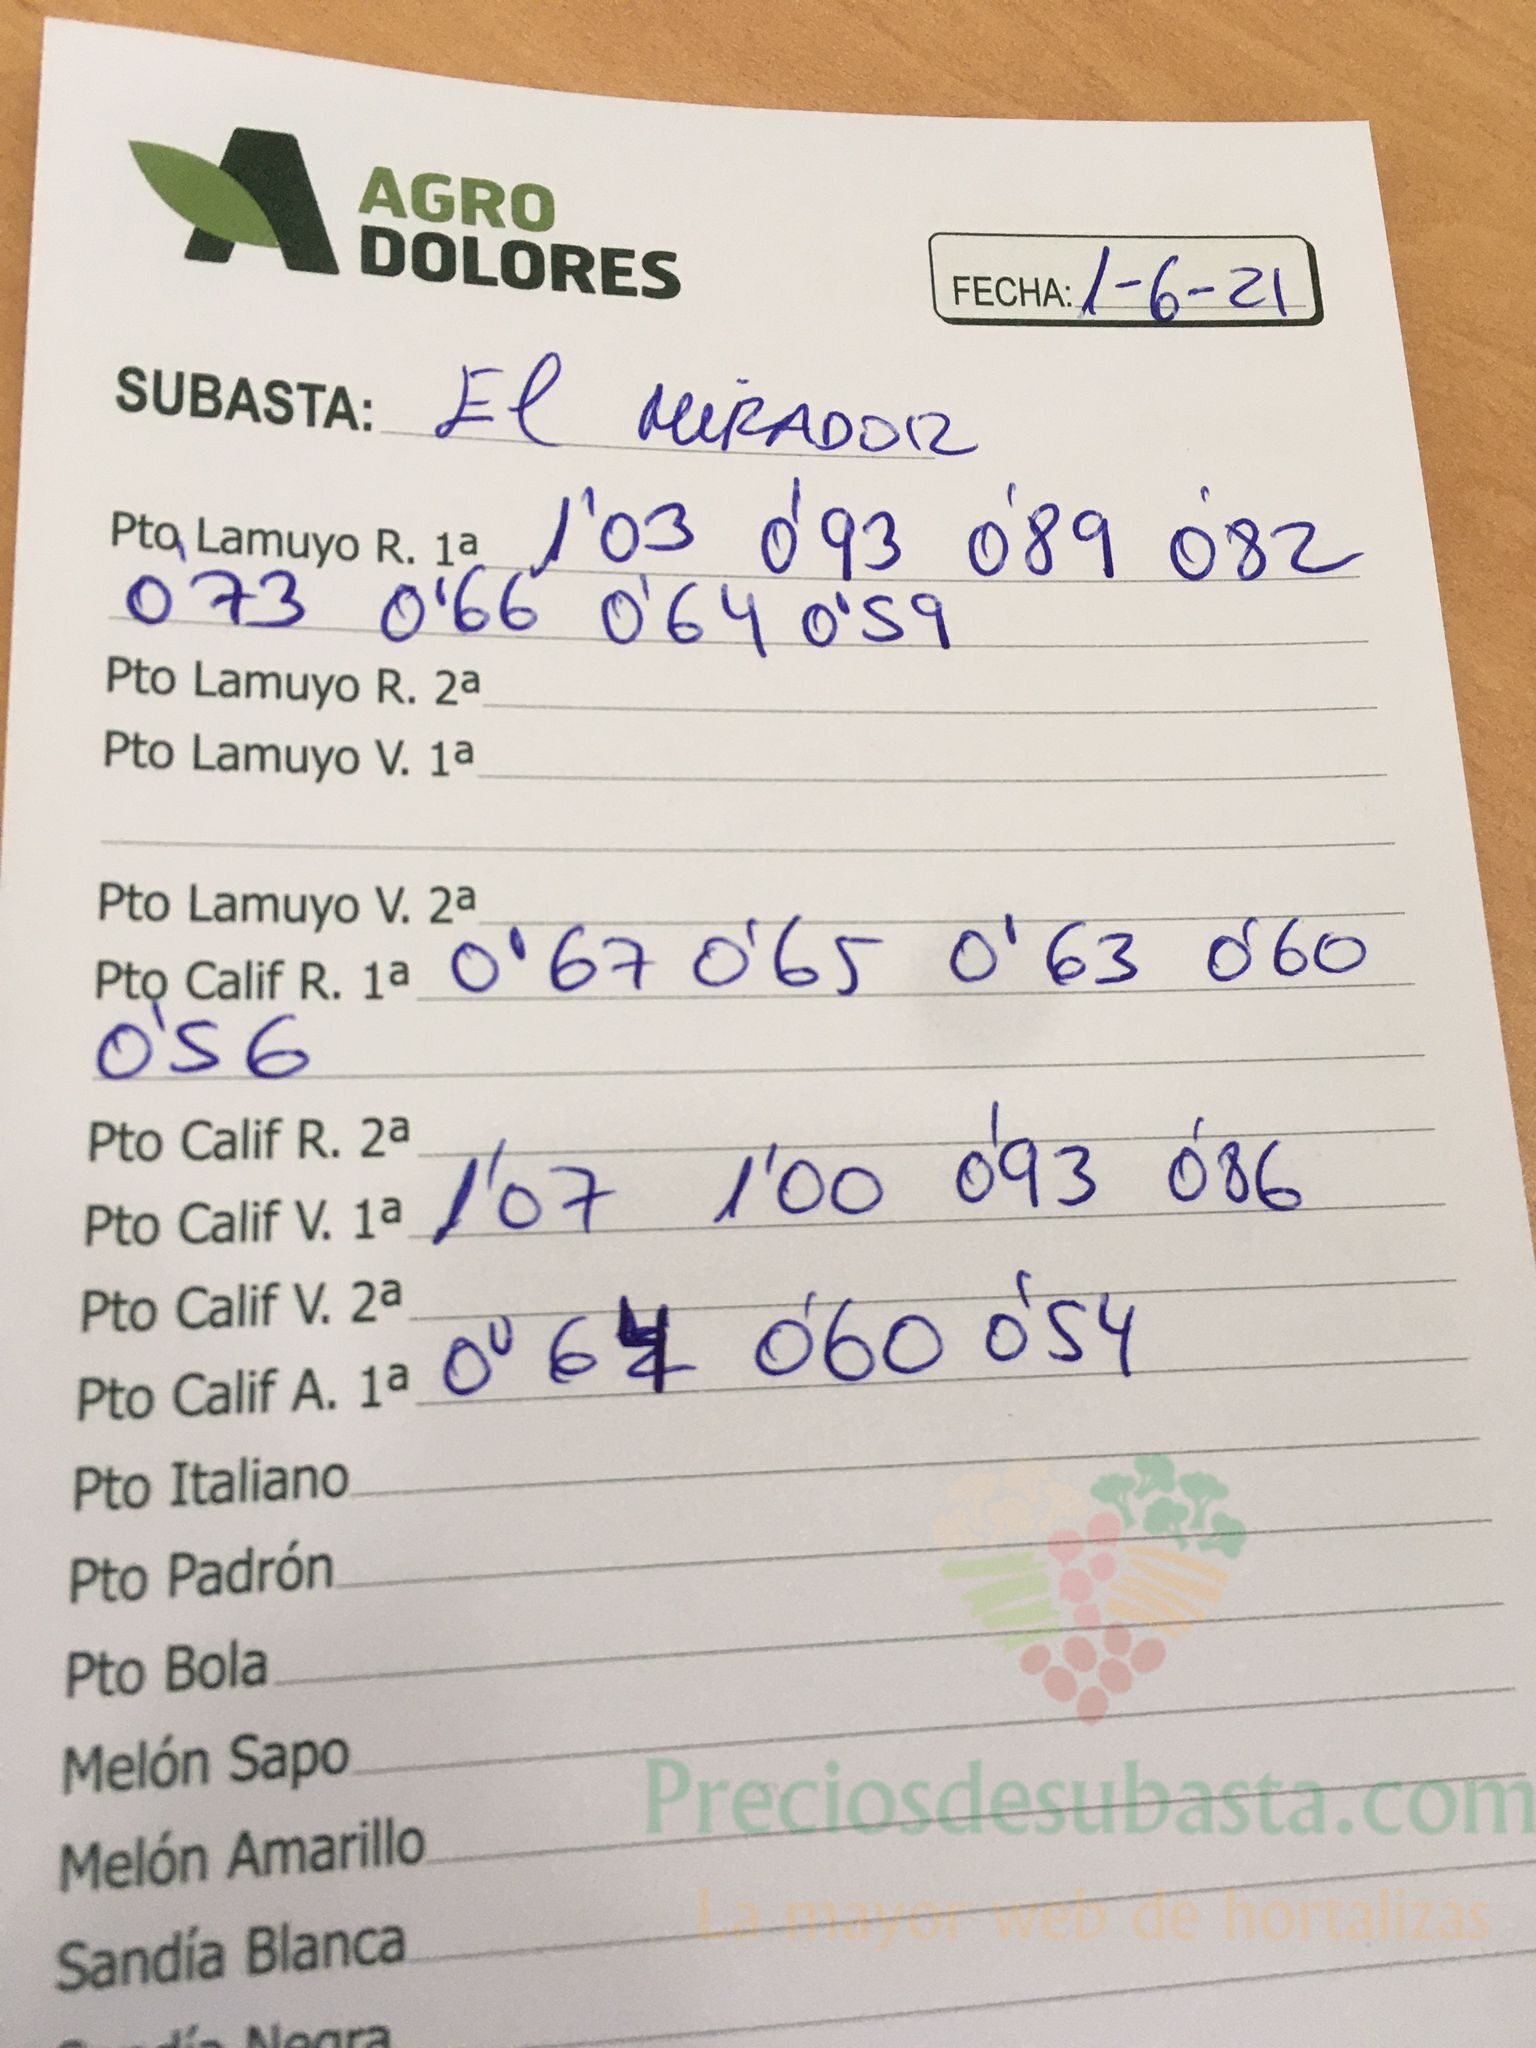 AGRO
DOLORES
FECHA: 1-6-21
SUBASTA: El MIRADOR
Pto Lamuyo R. 1ª 1'03 0'93 0'89 0'82
0'73 0'66 0'64 0'59
Pto Lamuyo R. 2ª
Pto Lamuyo V. 1ª
Pto Lamuyo V. 2ª
Pto Calif R. 1ª 0'67 0'65 0'63 0'60
0'56
Pto Calif R. 2ª
Pto Calif V. 1ª 1'07 1'00 0'93 0'86
Pto Calif V. 2ª
Pto Calif A. 1ª 0'60 0'54
Pto Italiano
Pto Padrón
Pto Bola
Melón Sapo
Preciosdesubasta.com
Melón Amarillo
La mayor web de hortalizas
Sandía Blanca
Sandía Negra